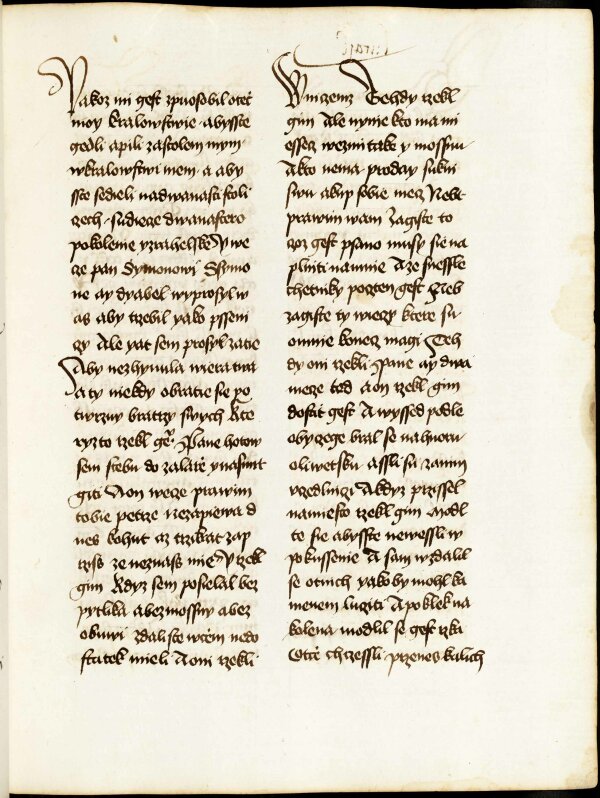 Yakoz mi gest zpuosobil otecz
moy Kralowstwie abysste
gedli a pili zastolem mym
wkralowstwi mem a aby
sste sedieli nadwanasti stoli
czech sudiecze dwanastero
pokolenie yzrahelske Y we
cze pan Symonowi Symo
ne ay dyabel wyprosyl w
as aby trzebil yako pssen
czy Ale yat sem prosyl zatie
Aby nezhynula wiera twa
a ty niekdy obratie sie po
twrzuy bratrzy swych Kte
ryzto rzekl gest Pane hotow
sem stebu do zalarze y nasmrt
giti A on wecze prawim
tobie petrze nezapiewa d
nes kohut az trzikat zap
trziss ze neznass mie Y rzekl
gim Kdyz sem posielal bez
pytlika a bez mossny a bez
obuwi zdaliste wczem nedo
statek mieli A oni rzekli
Wniczemz Tehdy rzekl
gim Ale nynie kto ma mi
essecz wezmi take y mossnu
A kto nema proday sukni
swu a kup sobie mecz Nebo
prawim wam Zagiste to
coz gest psano musy sie na
plniti namnie A ze snessle
chetniky pocten gest Neb
zagiste ty wieczy ktere su
omnie konecz magi Teh
dy oni rzekli Pane ay dwa
mecze tod A on rzekl gim
dosat gest A wyssed podle
obyczege bral se nahuoru
oliwetsku a ssli su zanim
vczedlniczi A kdyz przissel
namiesto rzekl gim Modl
te sie abysste newessli w
pokussenie A sam wzdalil
se otnich yako by mohl ka
menem lucziti A poklek na
kolena modlil se gest rzka
Otcze chczessli przenes kalich